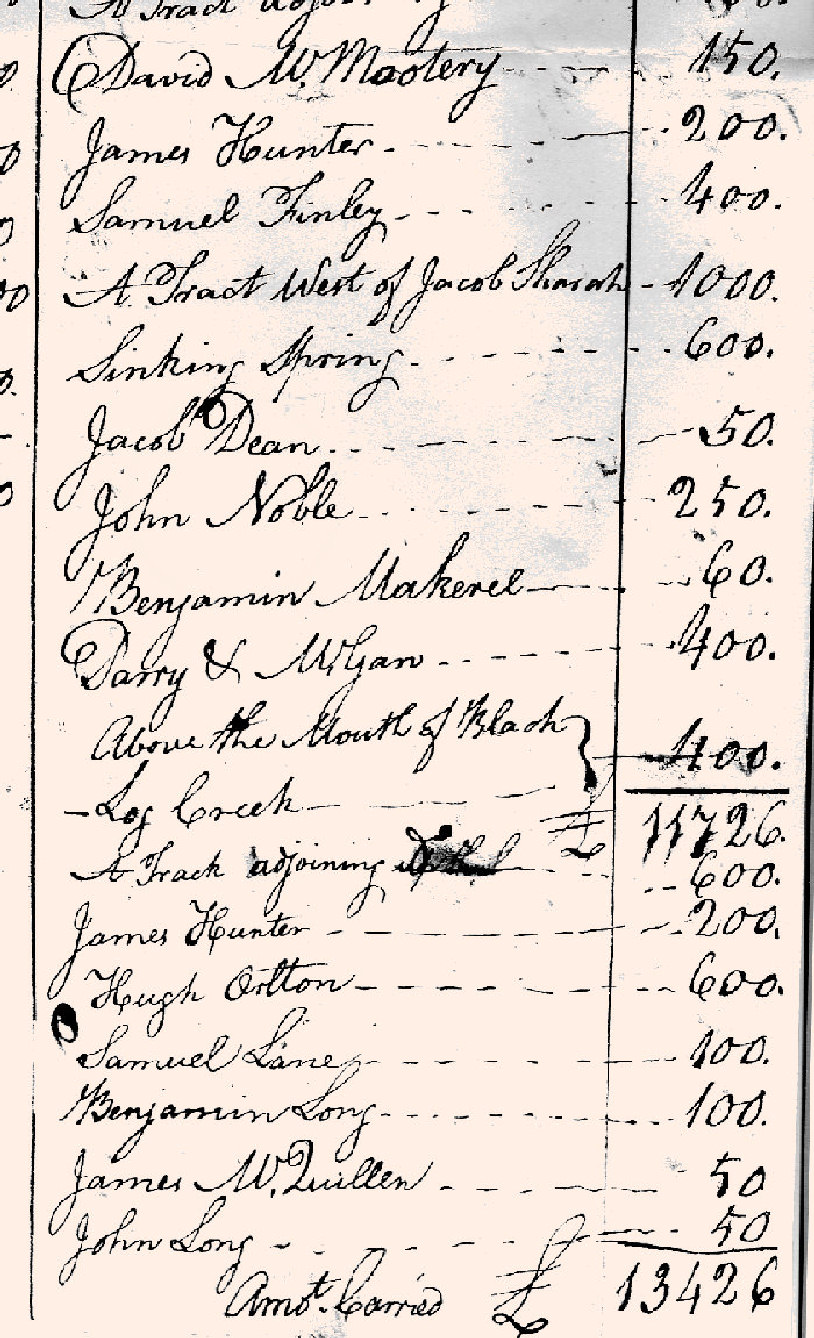 A Tract
David McMootery 150.
James Hunter 200.
Samuel Finley 400.
A Tract West of Jacob Sharah 1000.
Sinking Spring 600.
Jacob Dean 50.
John Noble 250.
Benjamin Makerel 60.
Darry & McGaw 400.
Above the Mouth of Black
Log Creek } 400.
£ 11726.
A Track adjoining 600.
James Hunter 200.
Hugh Orlton 600.
Samuel Lane 100.
Benjamin Long 100.
James McQuillen 50
John Long 50
Amot. Carried £ 13426